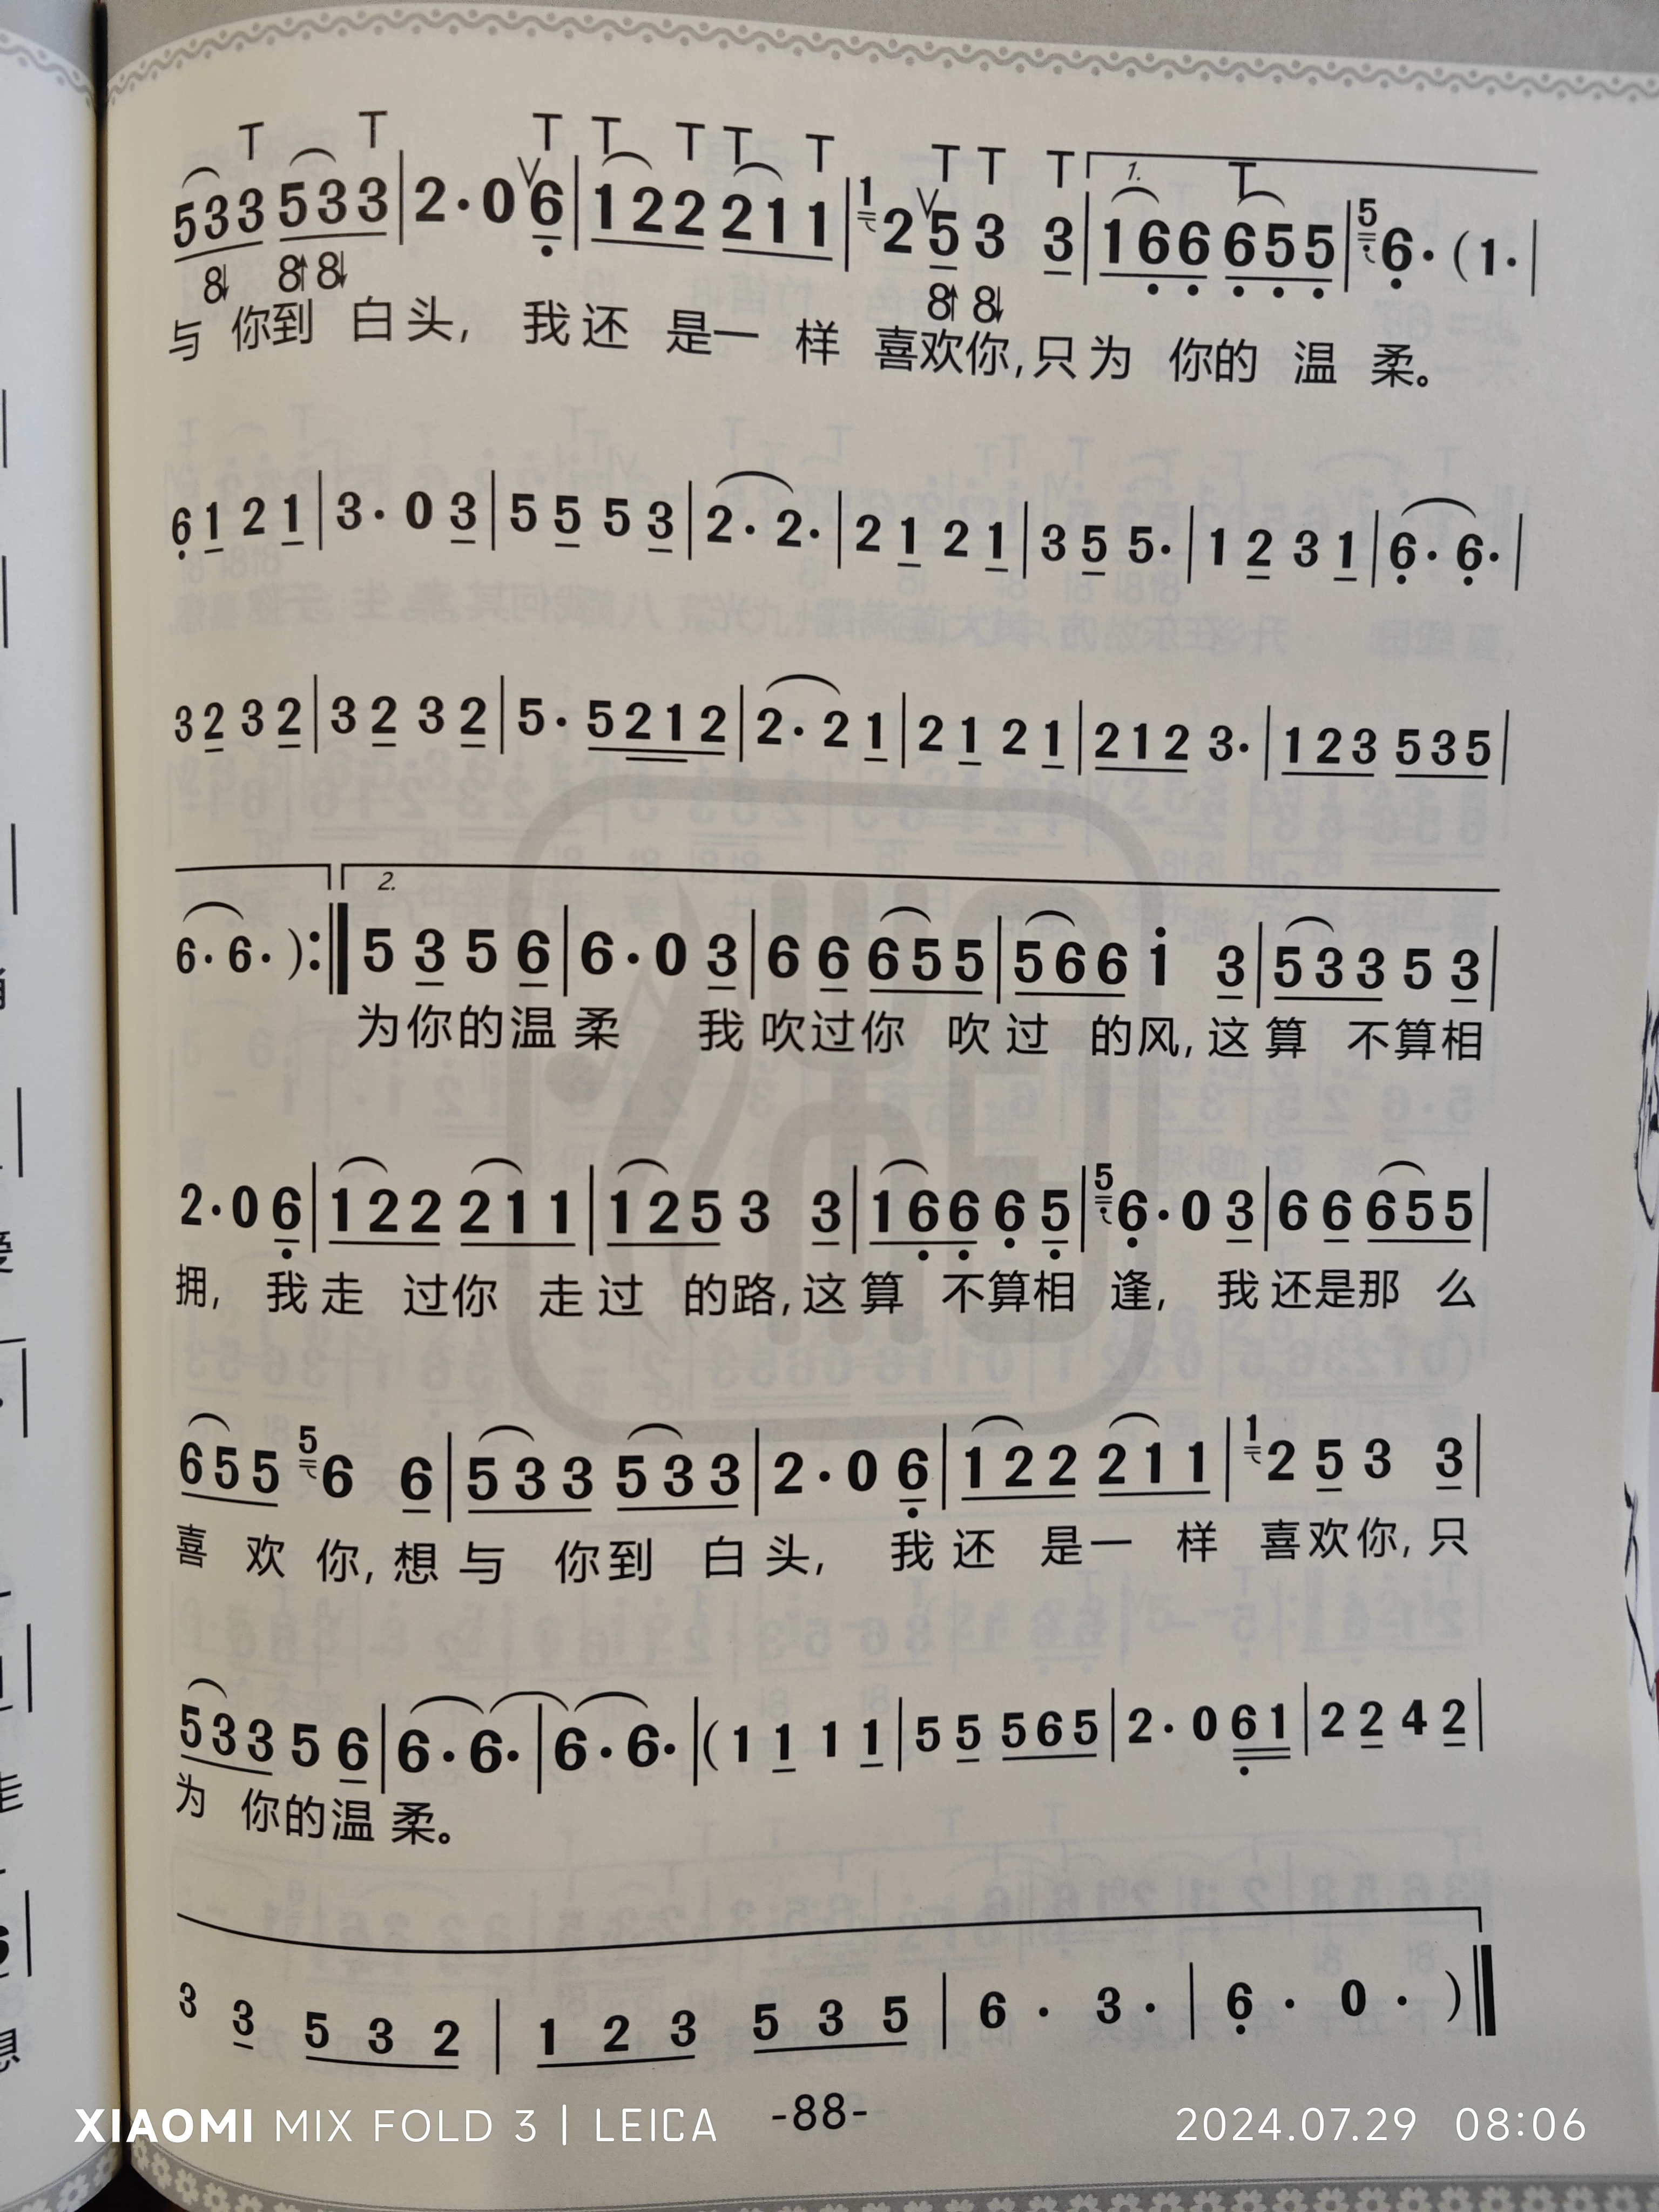 T T T T T T T T T T
533 533 | 2·0 ∨6 | 122 211 | 1 2 ∨5 3 3 | 1. 166 T 655 | 5 6· (1· |
8↓ 8↑ 8↓ 8↑ 8↓
与 你到 白头, 我还 是一 样 喜欢你,只为 你的 温 柔。
6 1 2 1 | 3· 0 3 | 5 5 5 3 | 2· 2· | 2 1 2 1 | 3 5 5· | 1 2 3 1 | 6· 6· |
3 2 3 2 | 3 2 3 2 | 5· 5212 | 2· 2 1 | 2 1 2 1 | 212 3· | 123 535 |
2.
6· 6· ):‖ 5 3 5 6 | 6· 0 3 | 6 6 655 | 566 i 3 | 533 5 3 |
为你的温 柔 我吹过你 吹过 的风,这算 不算相
2·0 6 | 122 211 | 125 3 3 | 166 6 5 | 5 6· 0 3 | 6 6 655 |
拥, 我走 过你 走过 的路,这算 不算相 逢, 我还是那 么
655 5 6 6 | 533 533 | 2·0 6 | 122 211 | 1 2 5 3 3 |
喜 欢 你,想与 你到 白头, 我还 是一 样 喜欢你,只
533 5 6 | 6· 6· | 6· 6· | (1 1 1 1 | 5 5 565 | 2· 0 61 | 2 2 4 2 |
为 你的温 柔。
3 3 5 3 2 | 1 2 3 5 3 5 | 6 · 3 · | 6 · 0 · )‖
-88-
XIAOMI MIX FOLD 3 | LEICA
2024.07.29 08:06